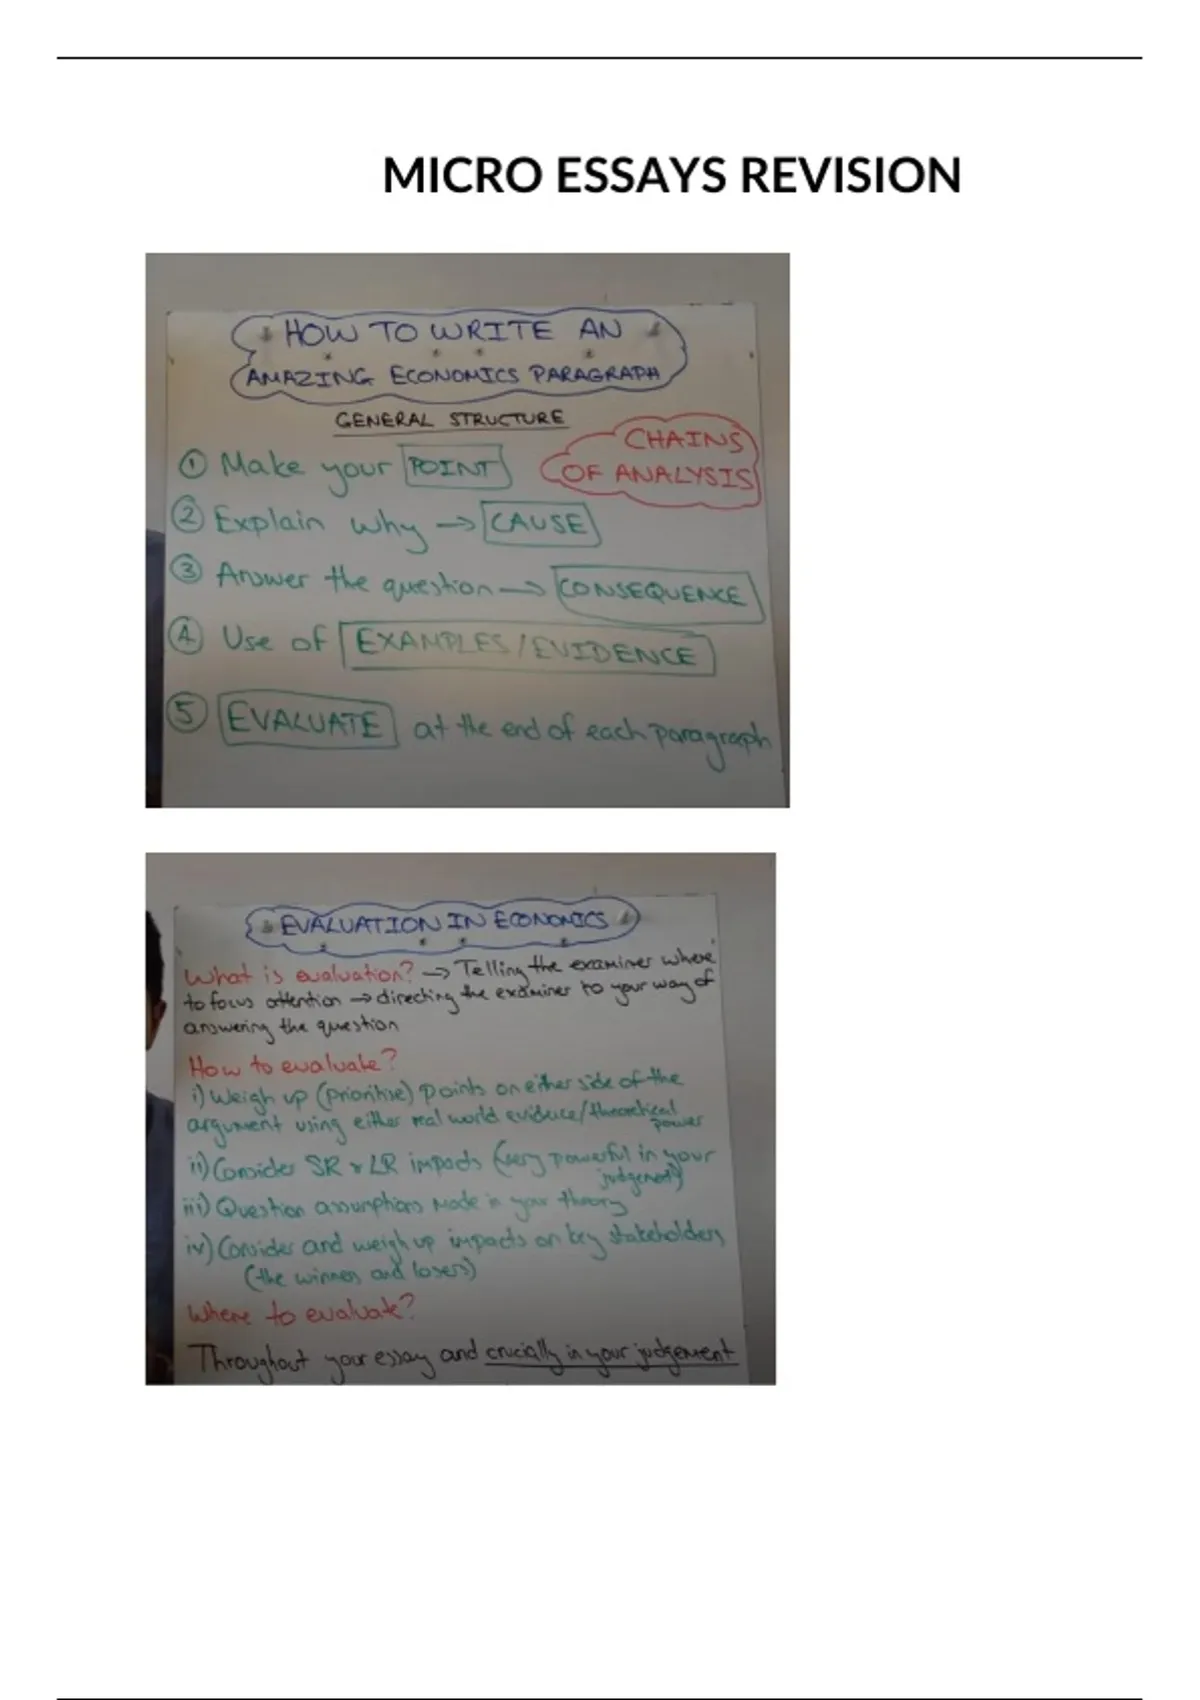 MICRO ESSAYS REVISION
HOW TO WRITE AN
AMAZING ECONOMICS PARAGRAPH
GENERAL STRUCTURE
CHAINS
OF ANALYSIS
① Make your POINT
② Explain why → CAUSE
③ Answer the question → CONSEQUENCE
④ Use of EXAMPLES/EVIDENCE
⑤ EVALUATE at the end of each paragraph
EVALUATION IN ECONOMICS
What is evaluation? → Telling the examiner where
to focus attention → directing the examiner to your way of
answering the question
How to evaluate?
i) Weigh up (prioritise) points on either side of the
argument using either real world evidence/theoretical
power
ii) Consider SR & LR impacts (very powerful in your
judgement)
iii) Question assumptions made in your theory
iv) Consider and weigh up impacts on key stakeholders
(the winners and losers)
Where to evaluate?
Throughout your essay and crucially in your judgement